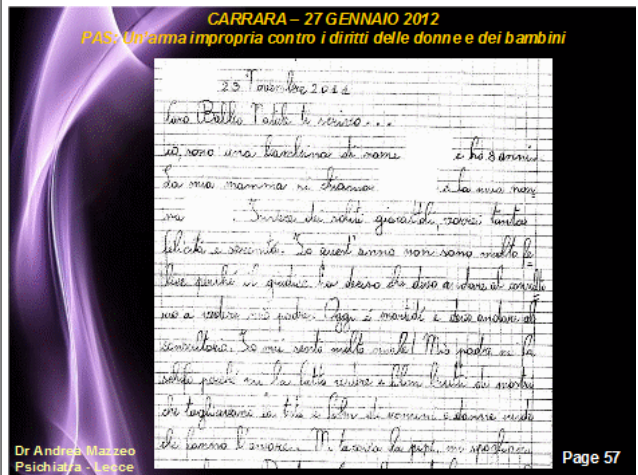 CARRARA – 27 GENNAIO 2012
PAS: Un'arma impropria contro i diritti delle donne e dei bambini
23 Novembre 2011
Caro Babbo Natale ti scrivo...
io, sono una bambina di nome e ho 8 anni.
La mia mamma si chiama e la mia non
na . Invece dei soliti giocattoli, vorrei tanta
felicità e serenità. Io quest'anno non sono molto fe
lice perché il giudice ha deciso che devo andare al consulto
rio a vedere mio padre. Oggi è martedì e devo andare al
consultorio. Io mi sento molto male! Mio padre mi fa
schifo perché mi ha fatto vedere i film brutti di mostri
che tagliavano la testa e film di uomini e donne nude
che fanno l'amore. Mi
Dr Andrea Mazzeo
Psichiatra - Lecce
Page 57